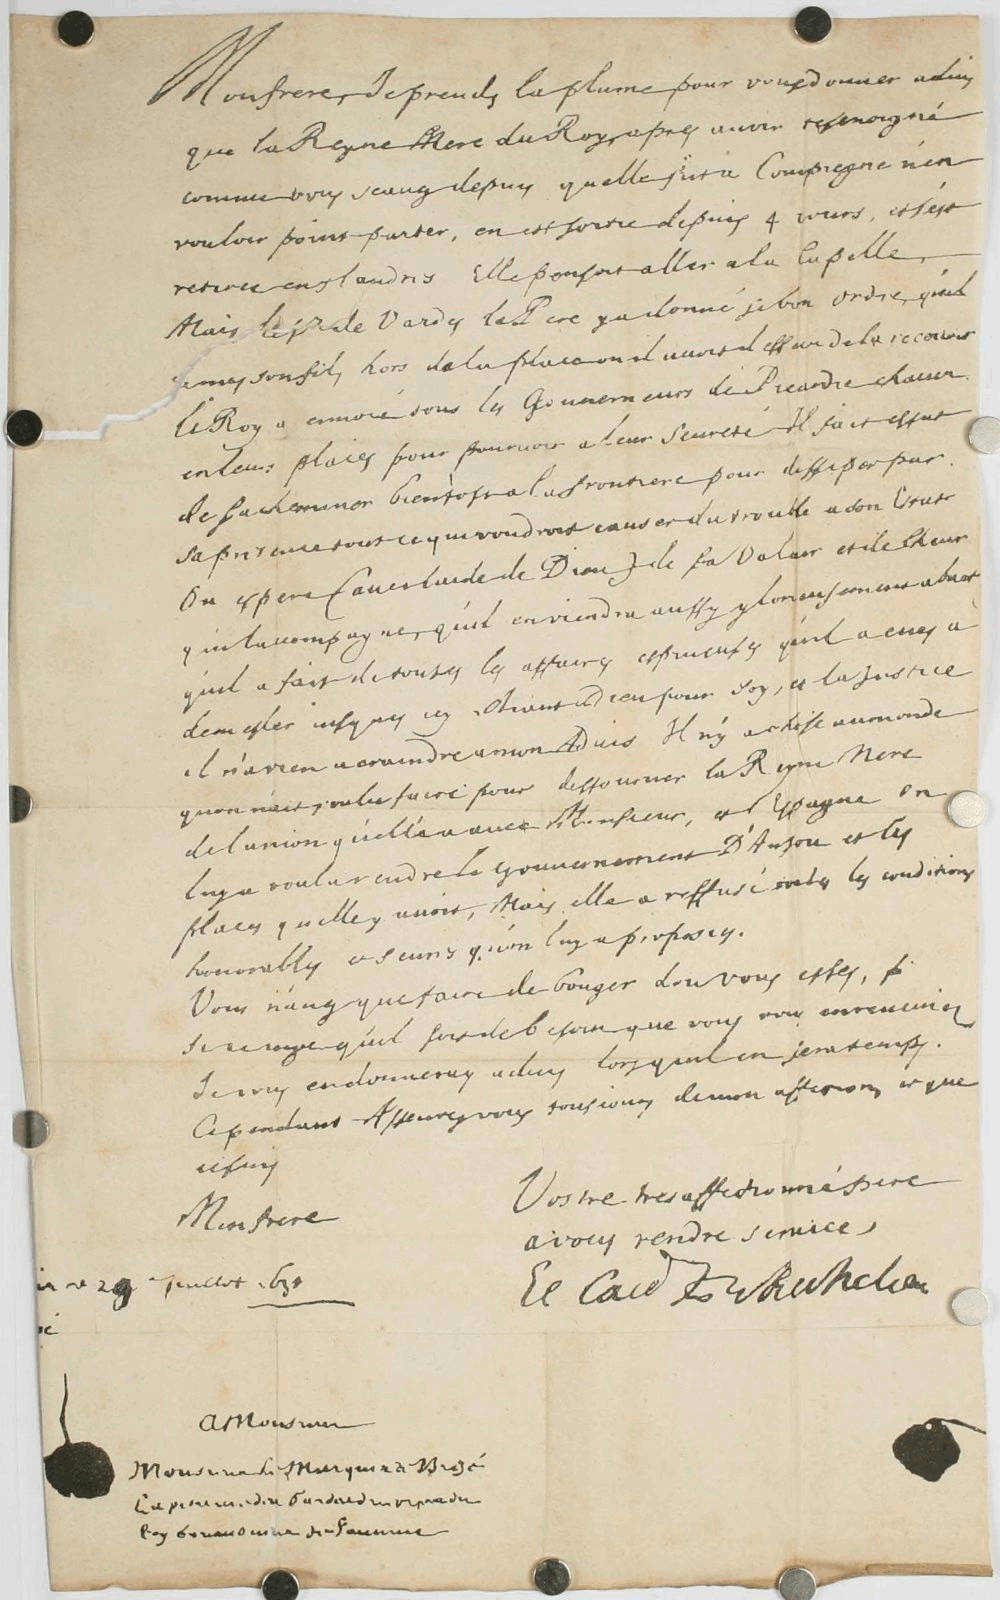 Mon frere, Je prends la plume pour vous donner aduis
que la Reyne Mere du Roy, apres auoir tesmoigné
comme vous scauez depuis quelle fut a Compiegne n'en
vouloir point partir, en est sortie depuis 4 iours, et s'est
retiree en flandres Elle pensoit aller a la Capelle,
Mais le Sr de Vardes le Pere y a donné si bon ordre, qu'il
a mis son fils hors de la place ou il auoit dessein de la receuoir
le Roy a enuoié tous les Gouuerneurs de Picardie chacun
en leurs places pour pouruoir a leur seureté Il fait estat
de s'acheminer bientost a la frontiere pour dissiper par
sa presence tout ce qui voudroit causer du trouble a son Estat
On espere (auec l'aide de Dieu) de sa Valeur et de l'heur
qui l'acompagne, qu'il en viendra aussy glorieusement a bout
qu'il a fait de toutes les affaires espineuses qu'il a eues a
demesler iusques icy Aiant Dieu pour soy, et la Justice
il n'a rien a craindre a mon Aduis Il n'y a chose au monde
qu'on n'ait voulu faire pour destourner la Reyne Mere
de l'union qu'elle a auec Monsieur, et l'Espagne On
luy a voulu rendre le gouuernement D'Anjou et les
places qu'elle y auoit, Mais elle a reffusé toutes les conditions
honorables et seures qu'on luy a proposées.
Vous n'auez que faire de bouger d'ou vous estes, si
Je ne voye qu'il soit de besoin que vous vous en reueniez
Je vous en donneray aduis lors qu'il en sera temps.
Cependant Asseurez vous tousiours de mon affection, et que
ie suis
Mon frere
Vostre tres affectionné frere
a vous rendre seruice,
Le Card. de Richelieu
29 Juillet 1631
A Monsieur
Monsieur le Marquis de Brezé
Capitaine des Gardes du corps du
Roy Gouuerneur de Saumur